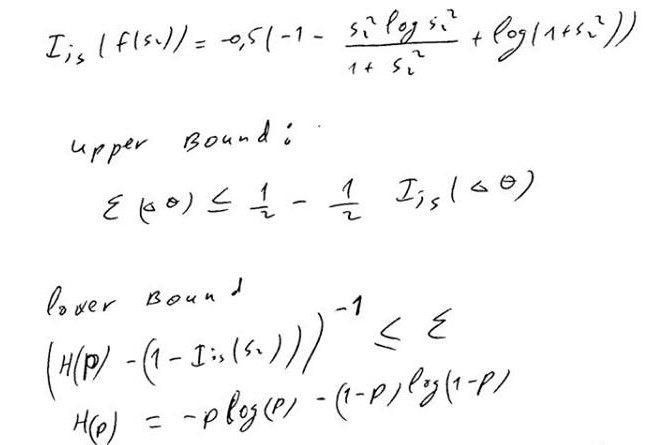 I_{js}(f(s_i)) = -0,5(-1 - \frac{s_i^2 log s_i^2}{1+ s_i^2} + log(1+s_i^2))
upper Bound:
ε(△θ) ≤ \frac{1}{2} - \frac{1}{2} I_{js}(△θ)
lower Bound
(H(p) - (1 - I_{js}(s_i)))^{-1} ≤ ε
H(p) = -p log(p) - (1-p) log(1-p)